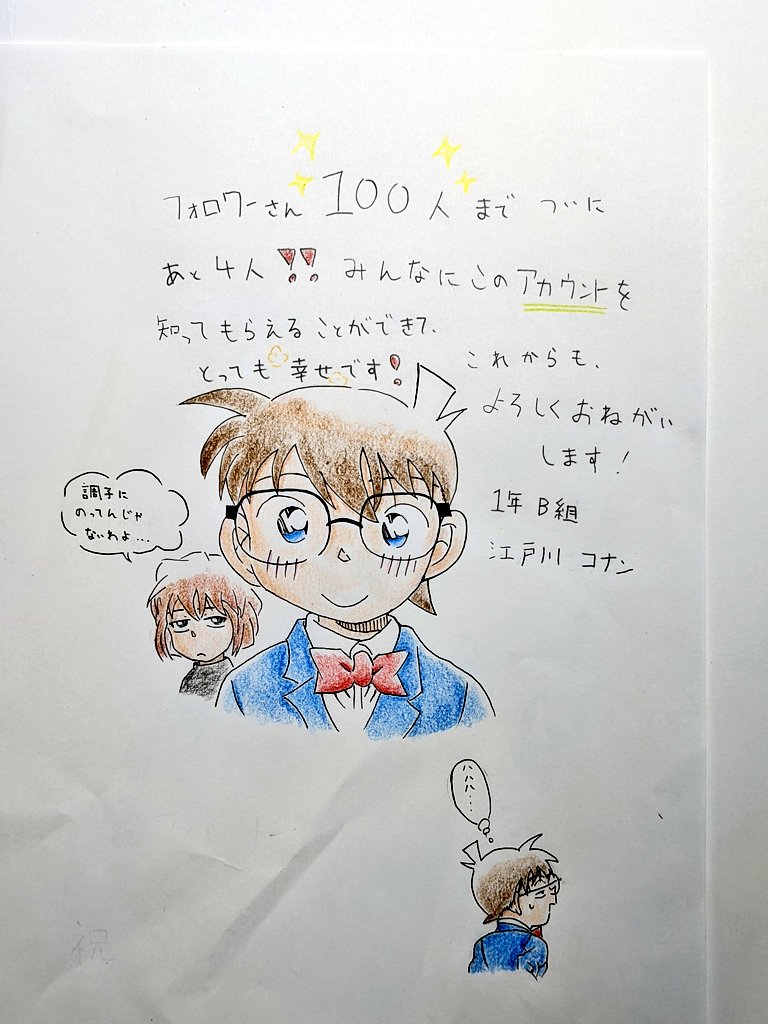 フォロワーさん 100人 まで ついに
あと4人!! みんなにこのアカウントを
知ってもらえることができて、
とっても幸せです!
これからも、
よろしくおねがい
します!
1年 B組
江戸川 コナン
調子に
のってんじゃ
ないわよ...
ハハハ...
祝